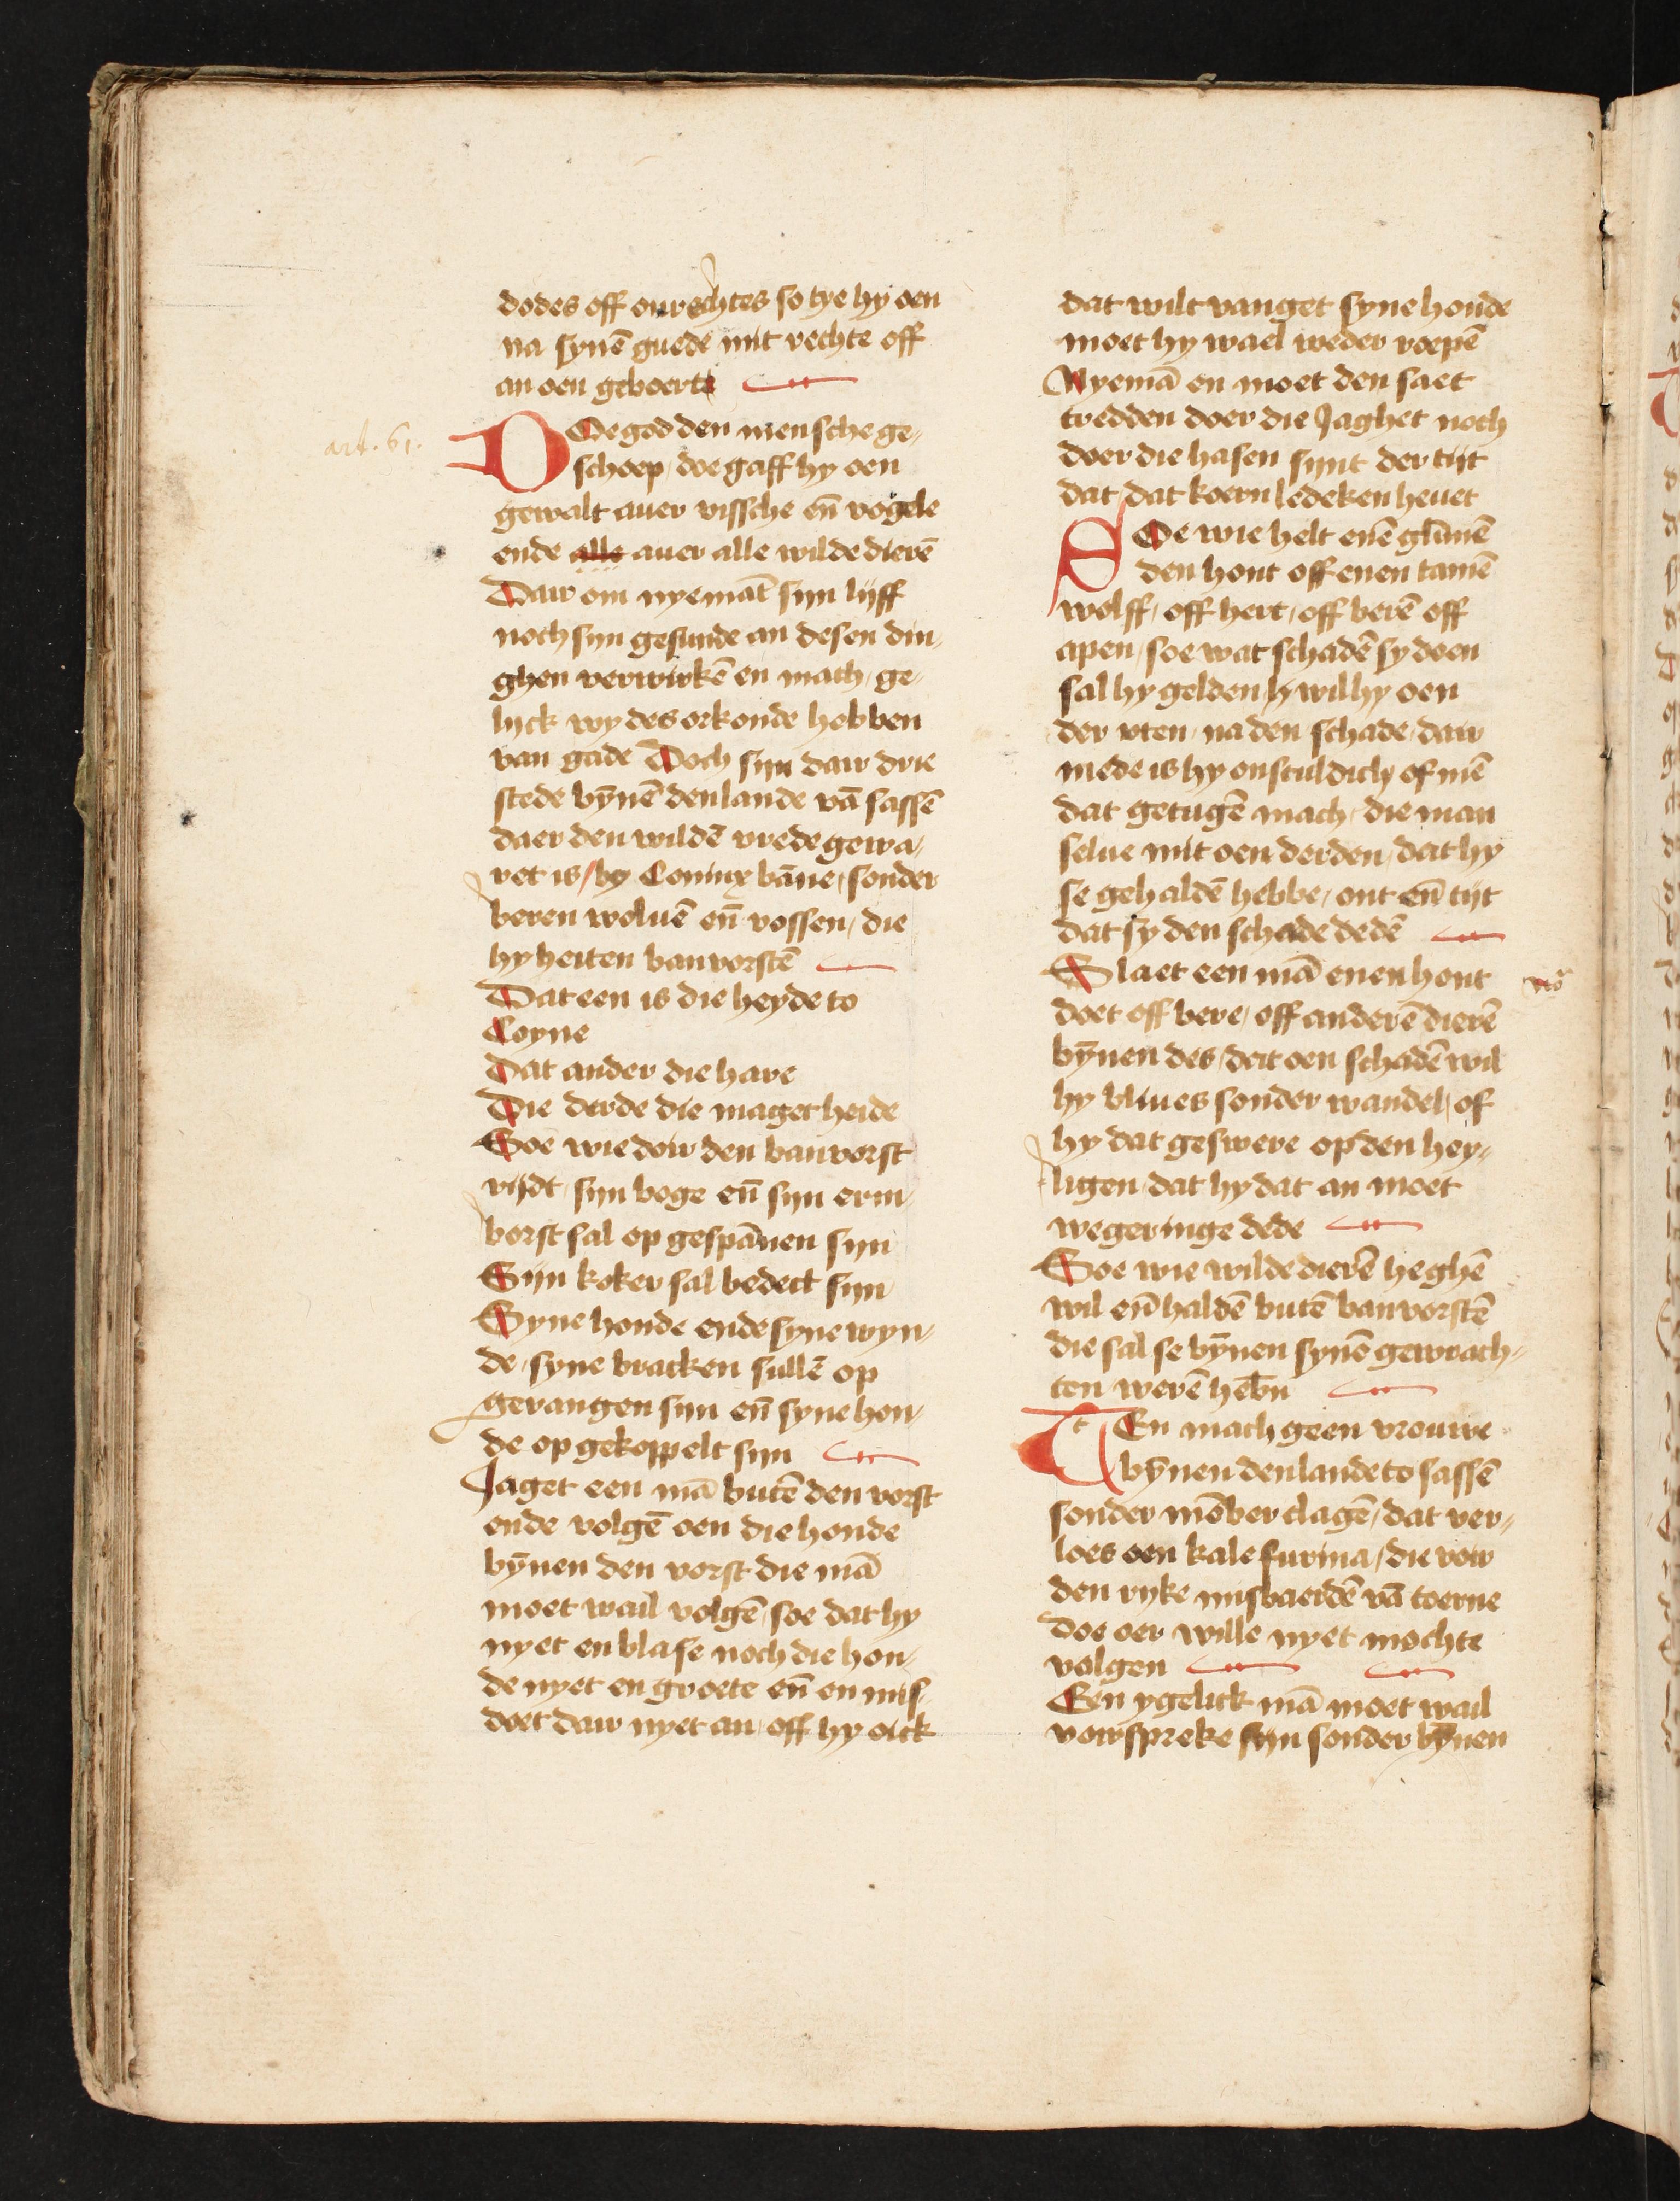 dodes off onrechtes so tye hy oen
na synē guedē mit rechte off
an oen geboert
art. 61.
DOe god den mensche ge⸗
schoep / doe gaff hy oen
gewalt auer vissche eñ vogele
ende alle auer alle wilde dierē
Dair om nyemāt sijn lijff
noch sijn gesunde an desen din⸗
ghen verwirkē en mach / ge⸗
lijck wy des orkonde hebben
van gade Doch sijn dair drie
stede bȳnē den lande vā sassē
daer den wildē vrede gewa⸗
ret is / by Coninx bāne / sonder
beren woluē eñ vossen / die
hy heiten banvorstē
Dat een is die heyde to
Coyne
Dat ander die hare
Die derde die maget heide
Soe wie doir den banvorst
rijdt / sijn boge eñ sijn erm⸗
borst sal op gespānen sijn
Sijn koker sal bedect sijn
Syne honde ende syne wyn⸗
de / syne bracken sullē op
gevangen sijn eñ syne hon⸗
de op gekoppelt sijn
Jaget een mā butē den vorst
ende volgē oen die honde
bȳnen den vorst die mā
moet wail volgē / soe dat hy
nyet en blase noch die hon⸗
de nyet en groete eñ en mis⸗
doet dair nyet an / off hy oick
dat wilt vanget syne honde
moet hy wael weder roepē
Nyemā en moet den saet
tredden doer die Jaghet noch
doer die hasen sijnt der tijt
dat / dat koern ledeken heuet
SOe wie helt enē glūnē
den hont off enen tamē
wolff / off hert / off berē off
apen / soe wat schadē sy doen
sal hy gelden / wil hy oen
der vten / na den schade / dair
mede is hy onsculdich / of mē
dat getugē mach / die man
selue mit oen derden / dat hy
se gehaldē hebbe / ont eñ tijt
dat sy den schade dedē
Slaet een mā enen hont
doet off bere / off anderē dierē
bȳnen des / dat oen schadē wil
hy bliues sonder wandel / of
hy dat geswere op den hey⸗
ligen / dat hy dat an moet
wegeringe dede
Soe wie wilde dierē heghē
wil eñ haldē butē banvorstē
die sal se bȳnen synē gewrach⸗
ten werē hēbn
TEn mach geen vrouwe
bȳnen den lande to sassē
sonder mōber clagē / dat ver⸗
loes oen kale furina / die voir
den ryke misbaerdē vā toerne
doe oer wille nyet mochte
volgen
Een ygelick mā moet wail
voirspreke sijn sonder bȳnen